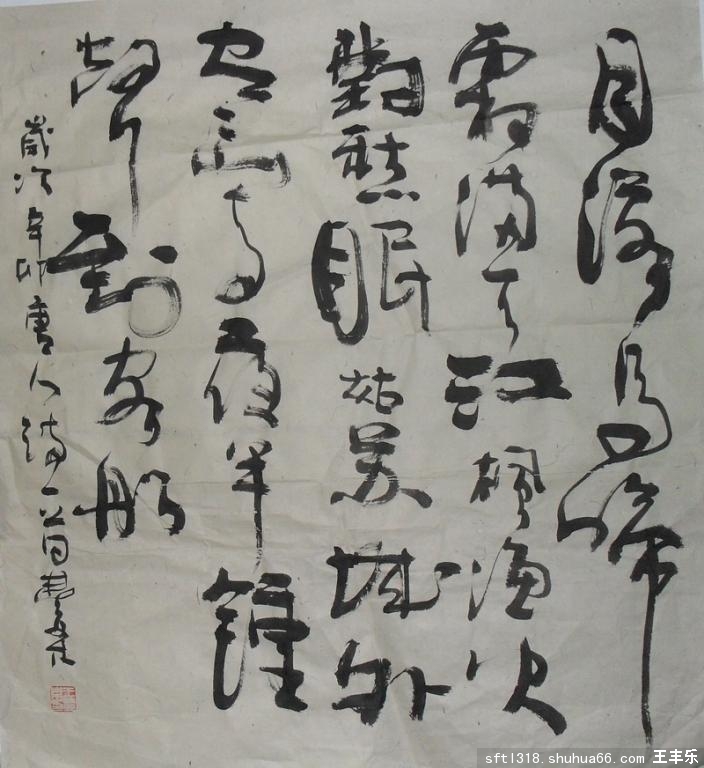 月落烏啼
霜滿天江楓漁火
對愁眠姑苏城外
寒山寺夜半鐘
聲到客船
歲次辛卯唐人詩一首豐樂
sftl318.shuhua66.com 王丰乐